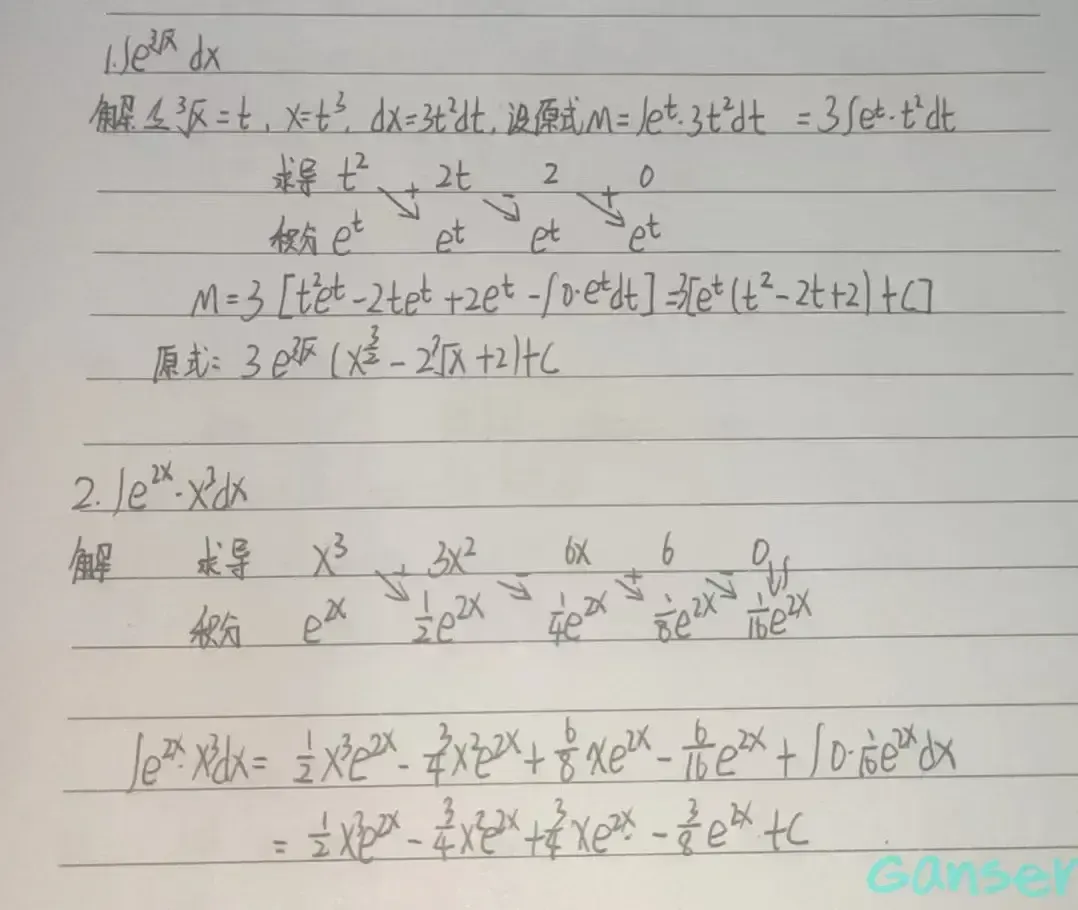 1.∫e^{3√x} dx
解 令 ³√x = t, x=t³, dx=3t²dt, 设原式M=∫e^t·3t²dt =3∫e^t·t²dt
求导 t² + 2t - 2 + 0
积分 e^t e^t e^t e^t
M=3[t²e^t-2te^t+2e^t-∫0·e^tdt]=3[e^t(t²-2t+2)+C]
原式= 3e^{3√x}(x^{3/2}-2³√x+2)+C
2.∫e^{2x}·x³dx
解 求导 x³ + 3x² - 6x + 6 - 0 ∫
积分 e^{2x} 1/2e^{2x} 1/4e^{2x} 1/8e^{2x} 1/16e^{2x}
∫e^{2x}·x³dx= 1/2x³e^{2x}-3/4x²e^{2x}+6/8xe^{2x}-6/16e^{2x}+∫0·1/16e^{2x}dx
= 1/2x³e^{2x}-3/4x²e^{2x}+3/4xe^{2x}-3/8e^{2x}+C
Ganser